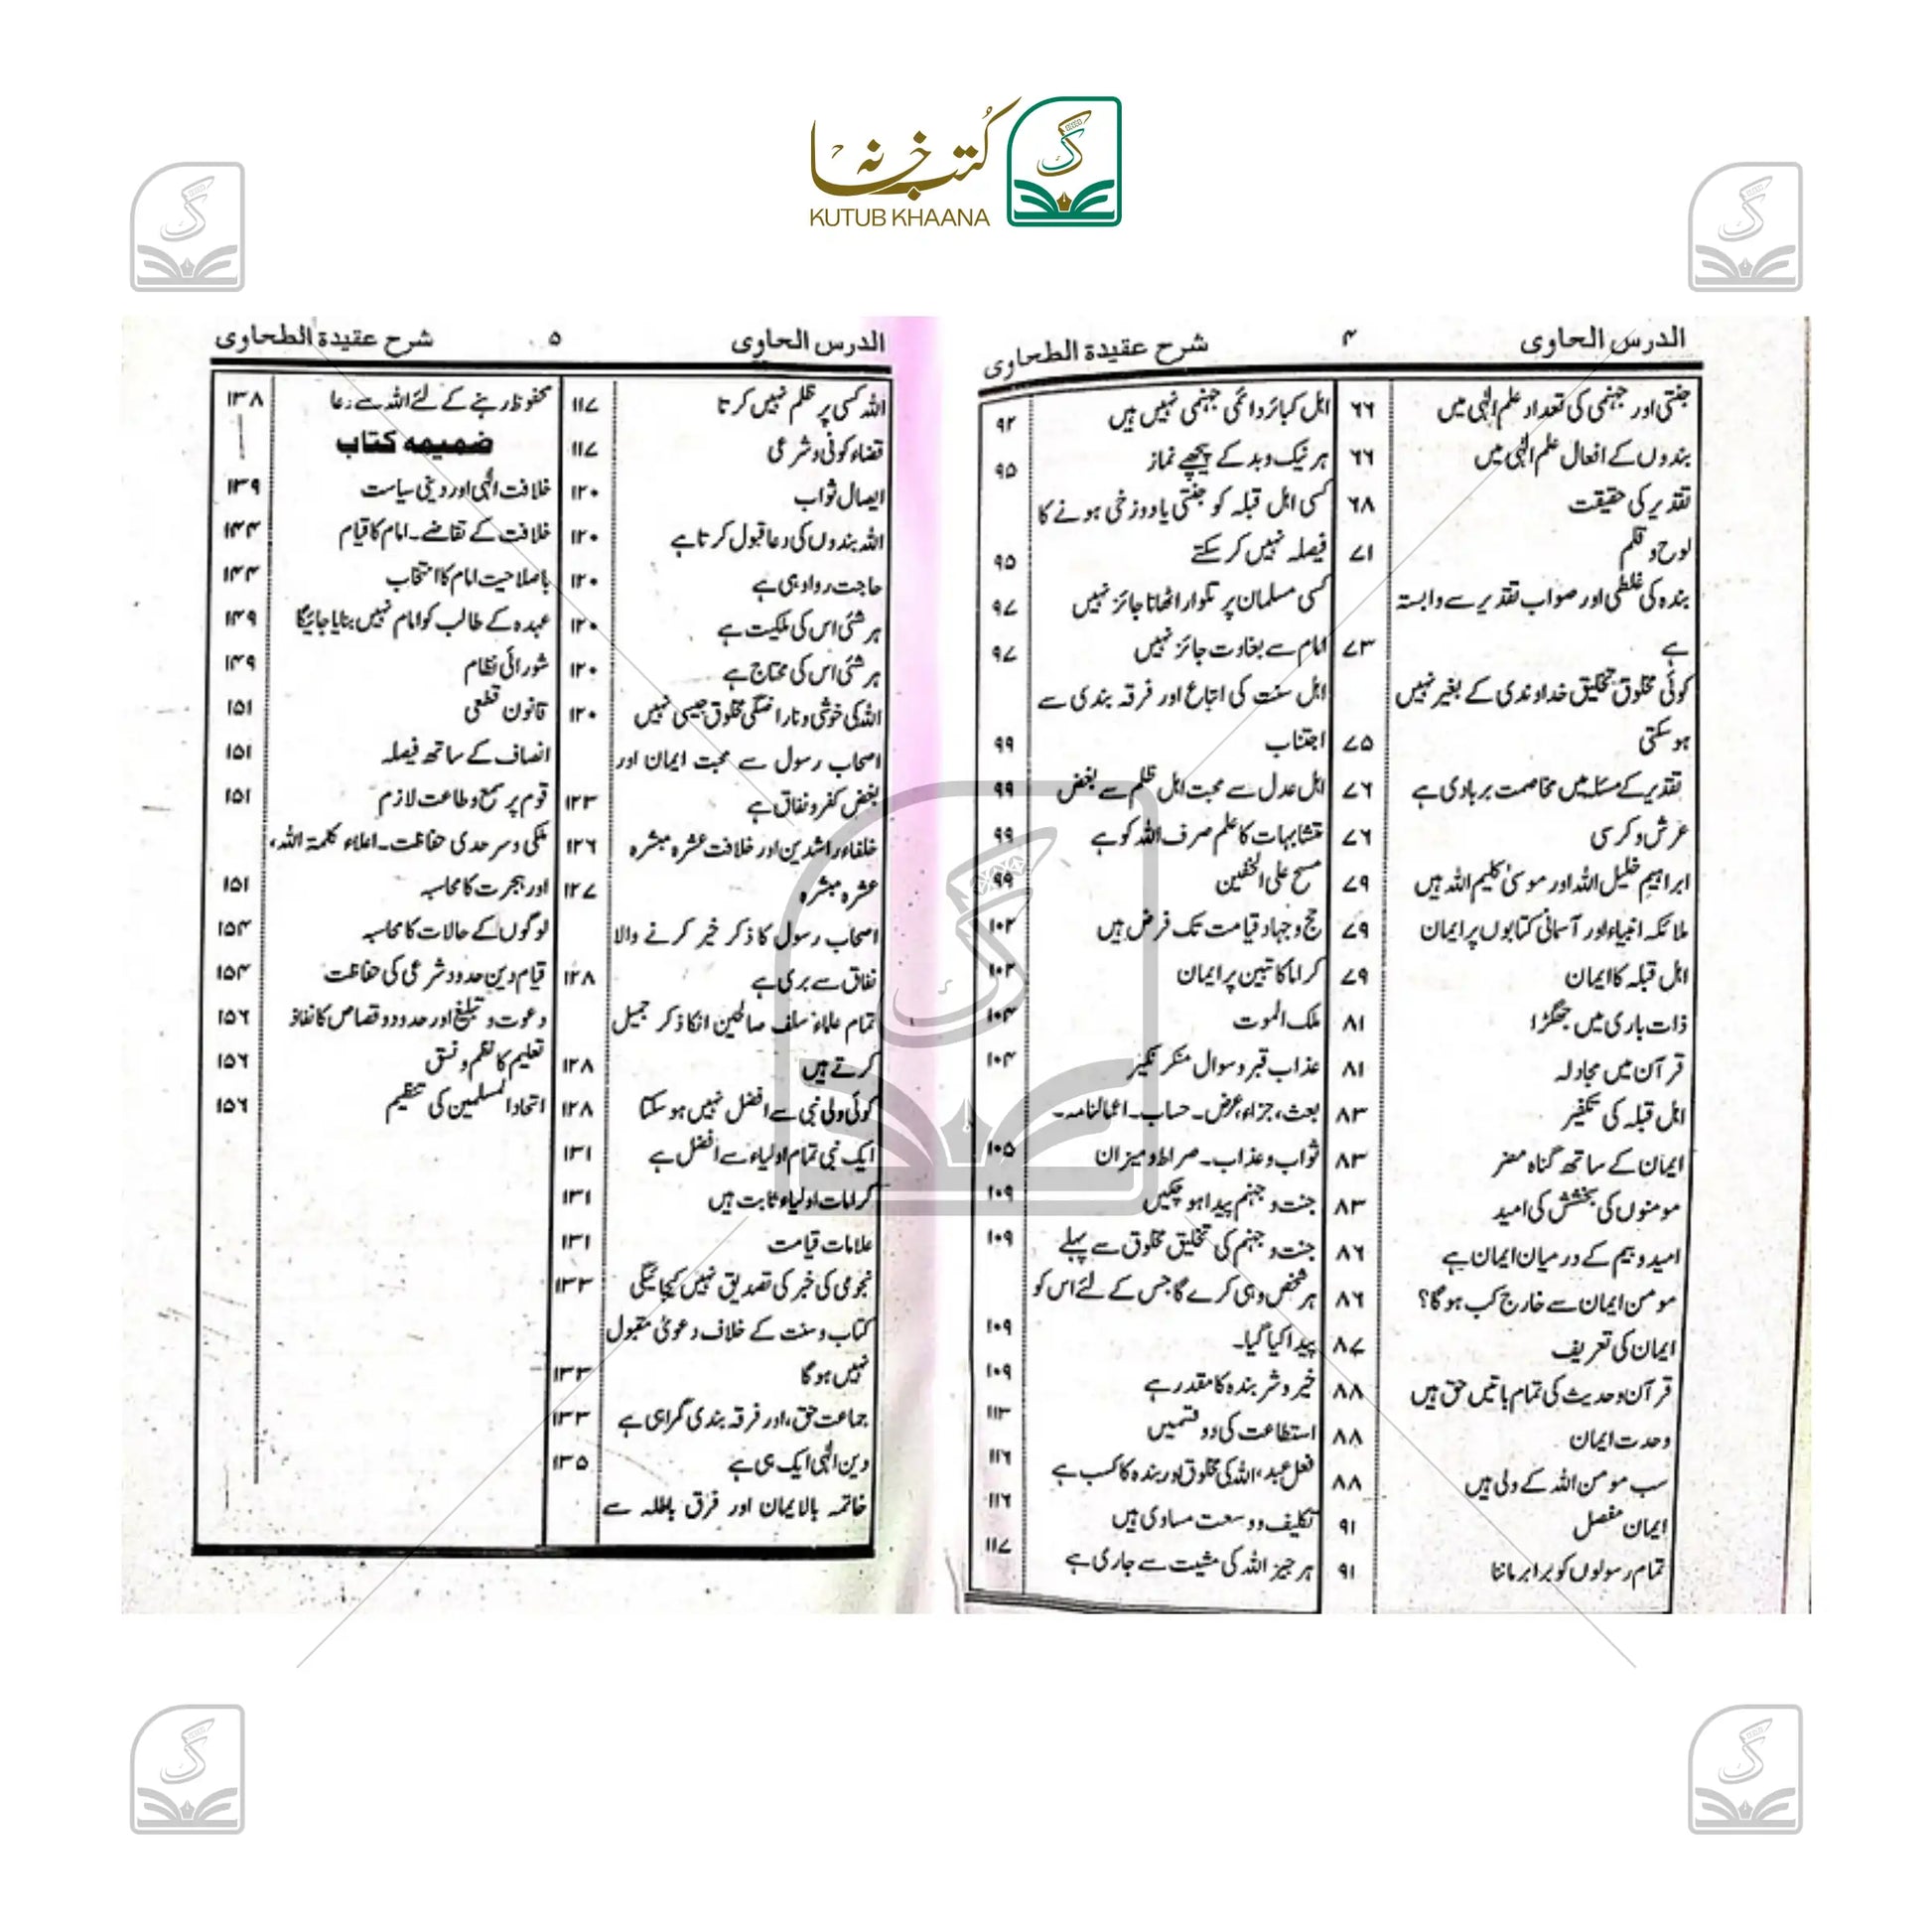 کُتب خانہ
KUTUB KHAANA
الدرس الحاوی ۴ شرح عقیدة الطحاوی
جنتی اور جہنمی کی تعداد علم الٰہی میں ۶۶
بندوں کے افعال علم الٰہی میں ۶۶
تقدیر کی حقیقت ۶۸
لوح و قلم ۷۱
بندہ کی غلطی اور صواب تقدیر سے وابستہ
ہے ۷۳
کوئی مخلوق تخلیق خداوندی کے بغیر نہیں
ہوسکتی ۷۵
تقدیر کے مسئلہ میں مخاصمت بربادی ہے ۷۶
عرش و کرسی ۷۶
ابراہیم خلیل اللہ اور موسیٰ کلیم اللہ ہیں ۷۹
ملائکہ انبیاء اور آسمانی کتابوں پر ایمان ۷۹
اہل قبلہ کا ایمان ۷۹
ذات باری میں جھگڑا ۸۱
قرآن میں مجادلہ ۸۱
اہل قبلہ کی تکفیر ۸۳
ایمان کے ساتھ گناہ مضر ۸۳
مومنوں کی بخشش کی امید ۸۳
امید و بیم کے درمیان ایمان ہے ۸۶
مومن ایمان سے خارج کب ہوگا؟ ۸۶
ایمان کی تعریف ۸۷
قرآن وحدیث کی تمام باتیں حق ہیں ۸۸
وحدت ایمان ۸۸
سب مومن اللہ کے ولی ہیں ۸۸
ایمان مفصل ۹۱
تمام رسولوں کو برابر ماننا ۹۱
اہل کبائر دائمی جہنمی نہیں ہیں ۹۲
ہر نیک و بد کے پیچھے نماز ۹۵
کسی اہل قبلہ کو جنتی یا دوزخی ہونے کا
فیصلہ نہیں کرسکتے ۹۵
کسی مسلمان پر تلوار اٹھانا جائز نہیں ۹۷
امام سے بغاوت جائز نہیں ۹۷
اہل سنت کی اتباع اور فرقہ بندی سے
اجتناب ۹۹
اہل عدل سے محبت اہل ظلم سے بغض ۹۹
متشابہات کا علم صرف اللہ کو ہے ۹۹
مسح علی الخفین ۹۹
حج و جہاد قیامت تک فرض ہیں ۱۰۲
کراماً کاتبین پر ایمان ۱۰۲
ملک الموت ۱۰۴
عذاب قبر و سوال منکر نکیر ۱۰۴
بعث، جزاء، عرض۔ حساب۔ اعمالنامہ۔
ثواب و عذاب۔ صراط و میزان ۱۰۵
جنت و جہنم پیدا ہوچکیں ۱۰۹
جنت و جہنم کی تخلیق مخلوق سے پہلے ۱۰۹
ہر شخص وہی کرے گا جس کے لئے اس کو
پیدا کیا گیا۔ ۱۰۹
خیر و شر بندہ کا مقدر ہے ۱۰۹
استطاعت کی دو قسمیں ۱۱۳
فعل عبد، اللہ کی مخلوق اور بندہ کا کسب ہے ۱۱۶
تکلیف و وسعت مساوی ہیں ۱۱۶
ہر چیز اللہ کی مشیت سے جاری ہے ۱۱۷
الدرس الحاوی ۵ شرح عقیدة الطحاوی
اللہ کسی پر ظلم نہیں کرتا ۱۱۷
قضاء کونی و شرعی ۱۱۷
ایصال ثواب ۱۲۰
اللہ بندوں کی دعا قبول کرتا ہے ۱۲۰
حاجت روا وہی ہے ۱۲۰
ہر شئی اس کی ملکیت ہے ۱۲۰
ہر شئی اس کی محتاج ہے ۱۲۰
اللہ کی خوشی و ناراضگی مخلوق جیسی نہیں ۱۲۰
اصحاب رسول سے محبت ایمان اور
بغض کفر و نفاق ہے ۱۲۳
خلفاء راشدین اور خلافت عشرہ مبشرہ ۱۲۶
عشرہ مبشرہ ۱۲۷
اصحاب رسول کا ذکر خیر کرنے والا
نفاق سے بری ہے ۱۲۸
تمام علماء سلف صالحین انکا ذکر جمیل
کرتے ہیں ۱۲۸
کوئی ولی نبی سے افضل نہیں ہوسکتا ۱۲۸
ایک نبی تمام اولیاء سے افضل ہے ۱۳۱
کرامات اولیاء ثابت ہیں ۱۳۱
علامات قیامت ۱۳۱
نجومی کی خبر کی تصدیق نہیں کیجائیگی ۱۳۳
کتاب و سنت کے خلاف دعویٰ مقبول
نہیں ہوگا ۱۳۳
جماعت حق، اور فرقہ بندی گمراہی ہے ۱۳۳
دین الٰہی ایک ہی ہے ۱۳۵
خاتمہ بالایمان اور فرق باطلہ سے
محفوظ رہنے کے لئے اللہ سے دعا ۱۳۸
ضمیمہ کتاب
خلافت الٰہی اور دینی سیاست ۱۳۹
خلافت کے تقاضے۔ امام کا قیام ۱۴۴
باصلاحیت امام کا انتخاب ۱۴۴
عہدہ کے طالب کو امام نہیں بنایا جائیگا ۱۴۹
شورائی نظام ۱۴۹
قانون قطعی ۱۵۱
انصاف کے ساتھ فیصلہ ۱۵۱
قوم پر سمع و طاعت لازم ۱۵۱
ملکی و سرحدی حفاظت۔ اعلاء کلمۃ اللہ،
اور ہجرت کا محاسبہ ۱۵۱
لوگوں کے حالات کا محاسبہ ۱۵۴
قیام دین حدود شرعی کی حفاظت ۱۵۴
دعوت و تبلیغ اور حدود و قصاص کا نفاذ ۱۵۶
تعلیم کا نظم و نسق ۱۵۶
اتحاد المسلمین کی تنظیم ۱۵۶